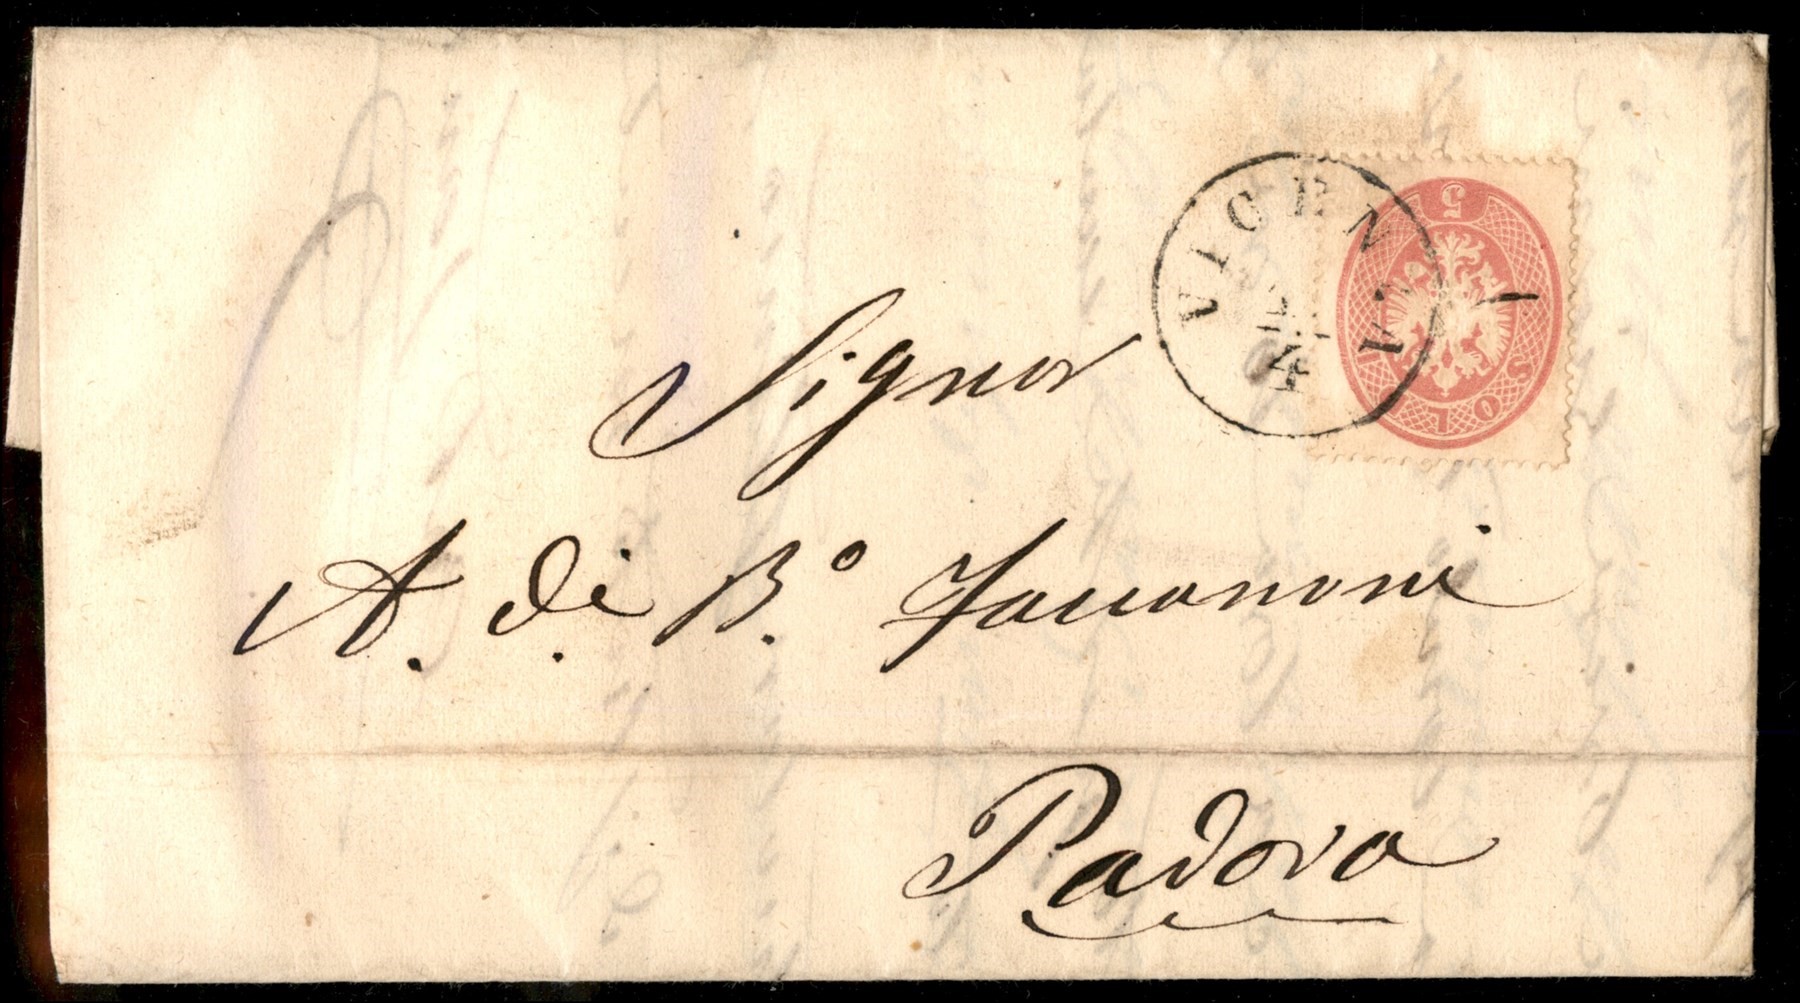 VICENZA
4
5
SOLDI
Signor
A. di B.° Jacuanoni
Padova